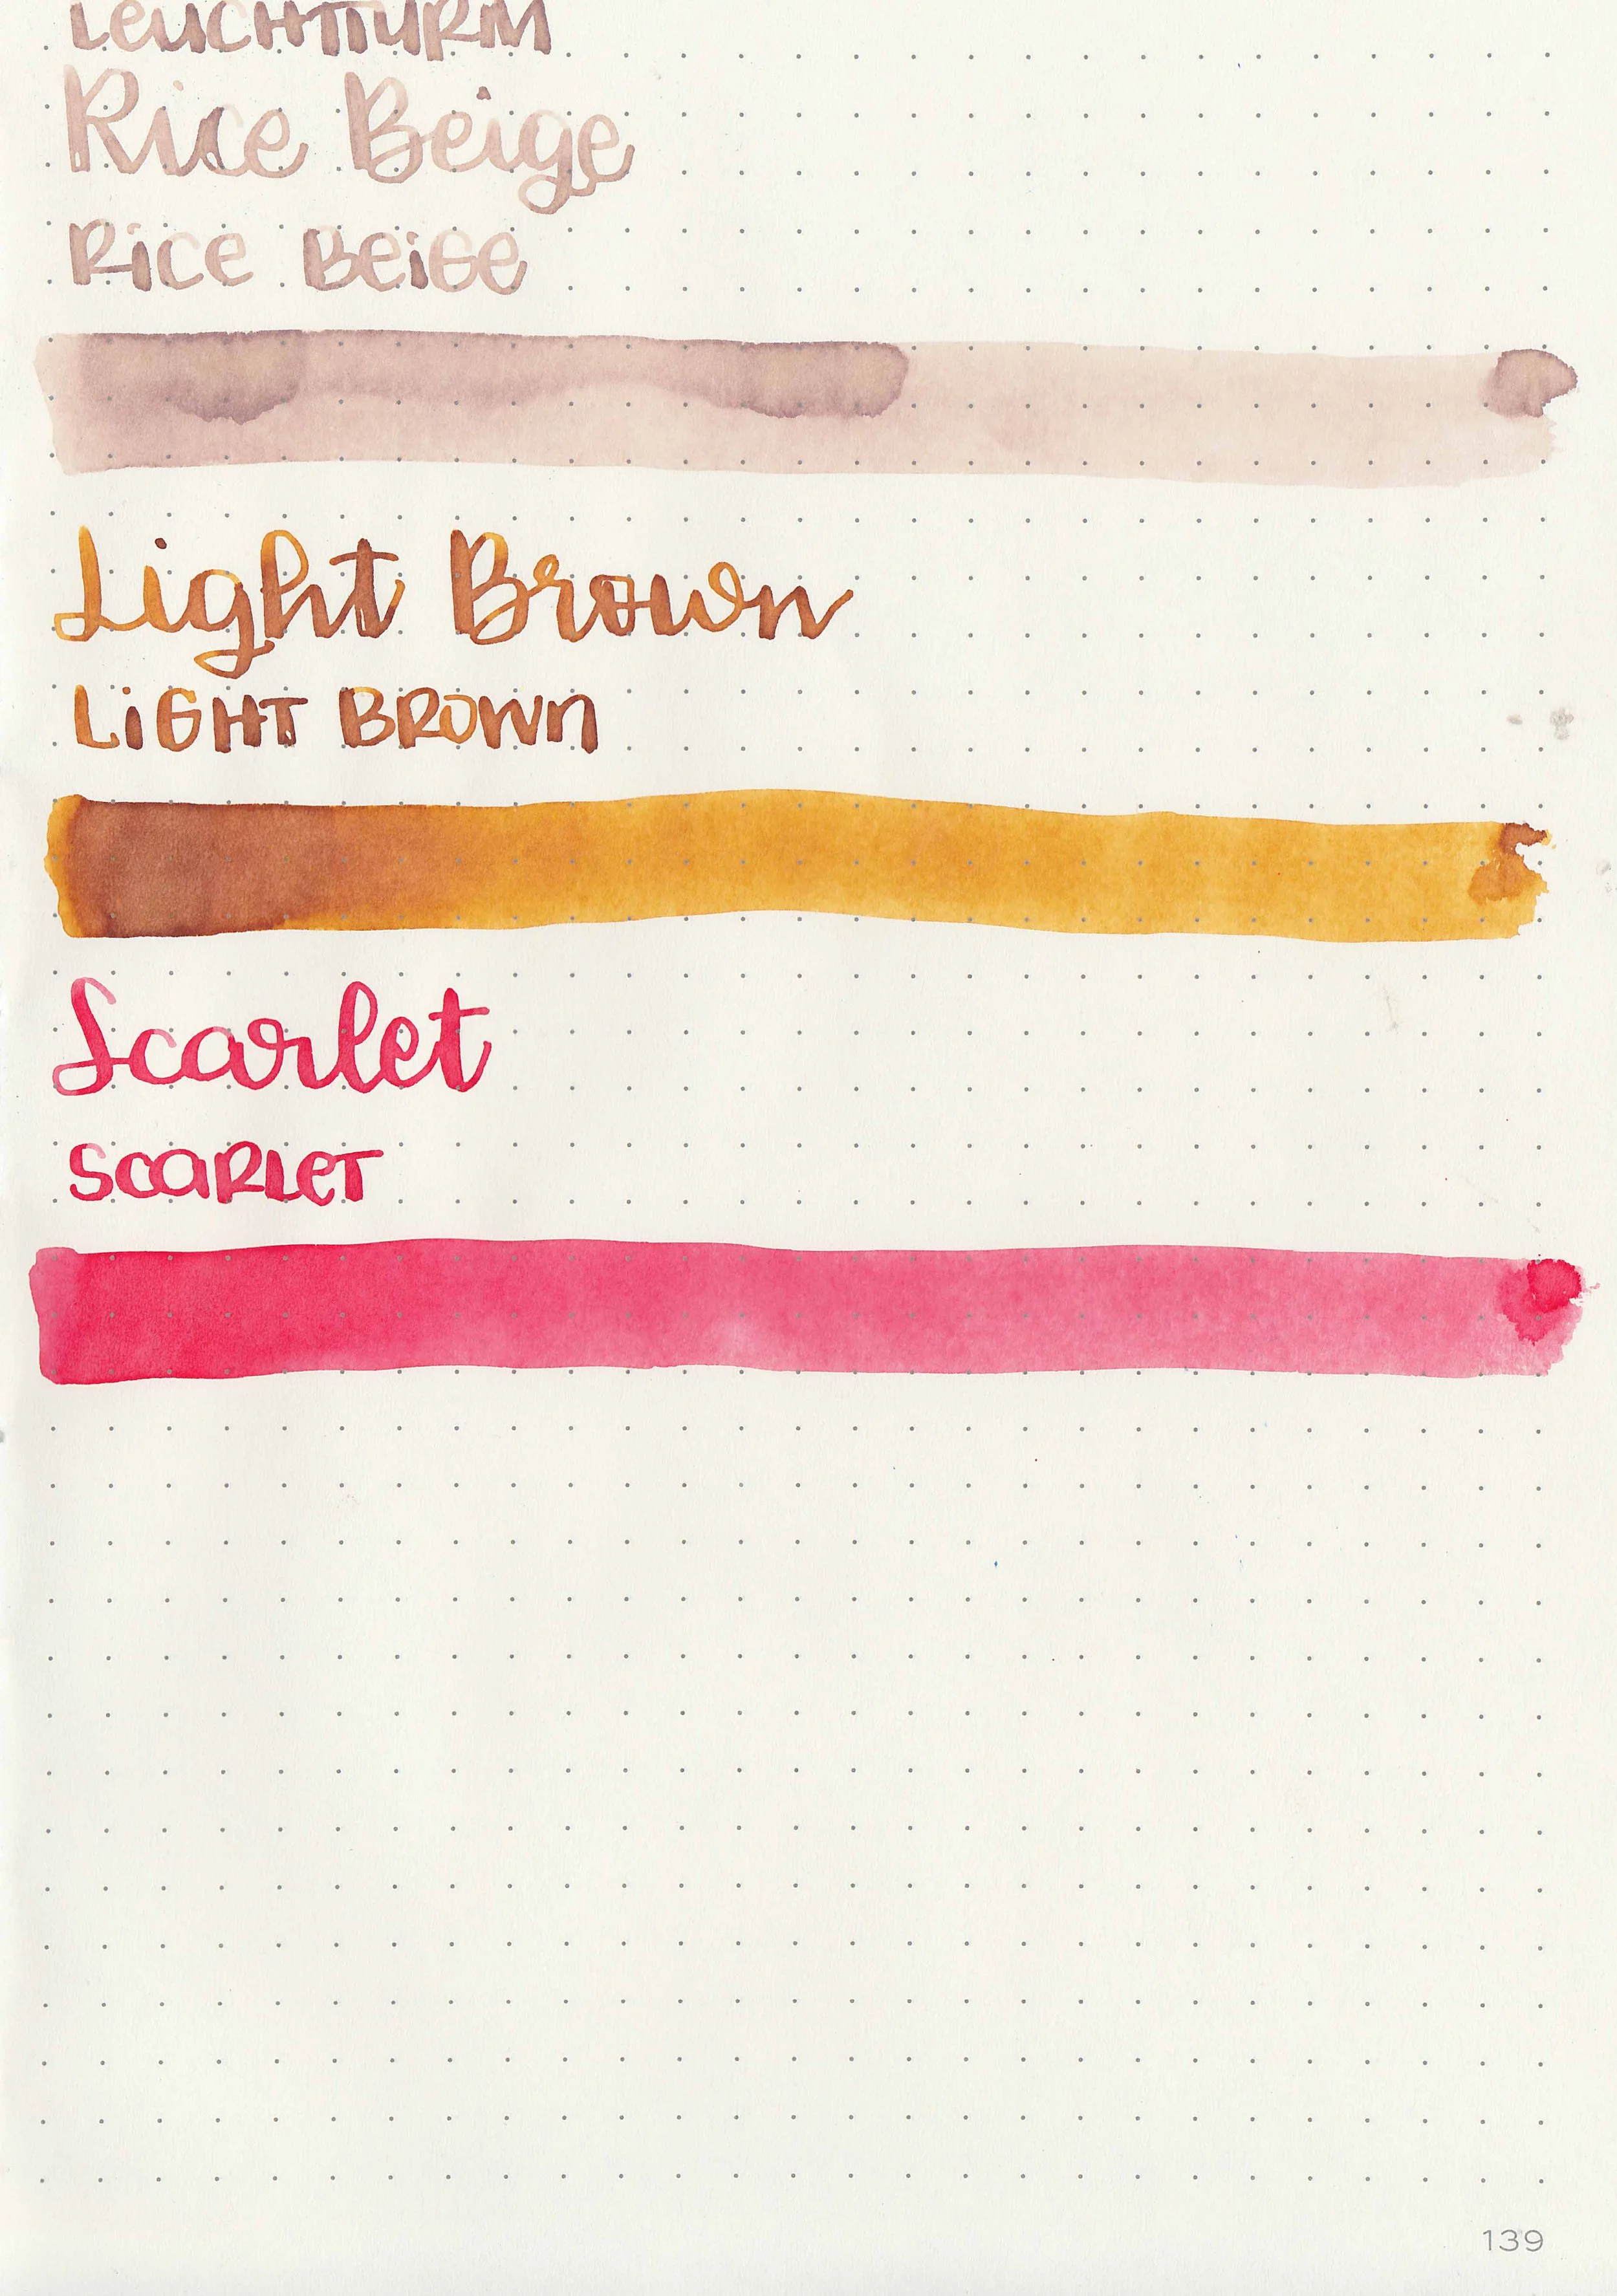 LEUCHTTURM
Rice Beige
Rice Beige
Light Brown
LiGHT BROWN
Scarlet
SCARLET
139